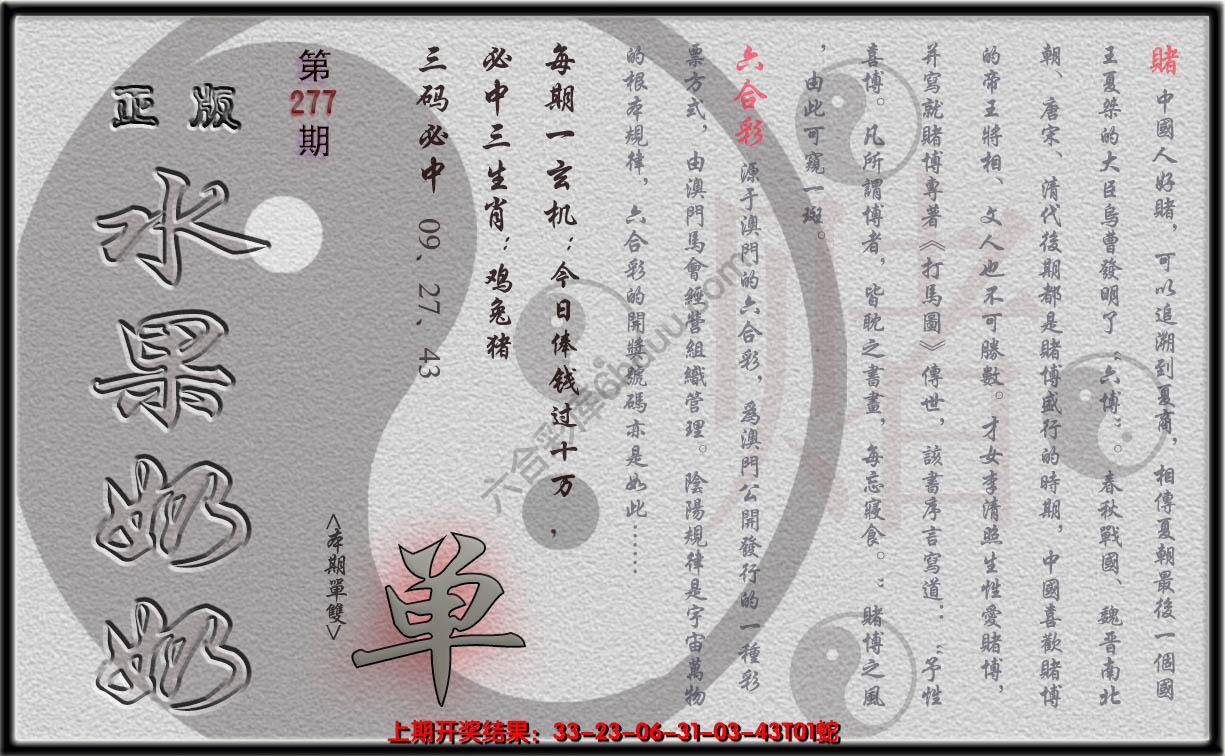 賭 中國人好賭，可以追溯到夏商，相傳夏朝最後一個國
王夏桀的大臣烏曹發明了“六博”。春秋戰國、魏晉南北
朝、唐宋、清代後期都是賭博盛行的時期，中國喜歡賭博
的帝王將相、文人也不可勝數。才女李清照生性愛賭博，
并寫就賭博專著《打馬圖》傳世，該書序言寫道：“予性
喜博。凡所謂博者，皆耽之書畫，每忘寢食。”賭博之風
，由此可窺一斑。
六合彩 源于澳門的六合彩，為澳門公開發行的一種彩
票方式，由澳門馬會經營組織管理。陰陽規律是宇宙萬物
的根本規律，六合彩的開獎號碼亦是如此……
每期一玄机：今日俸钱过十万，
必中三生肖：鸡兔猪
三码必中 09、27、43
第277期
<本期單雙>
单
正版
水果奶奶
賭
六合彩库6huuu.com
上期开奖结果：33-23-06-31-03-43T01蛇